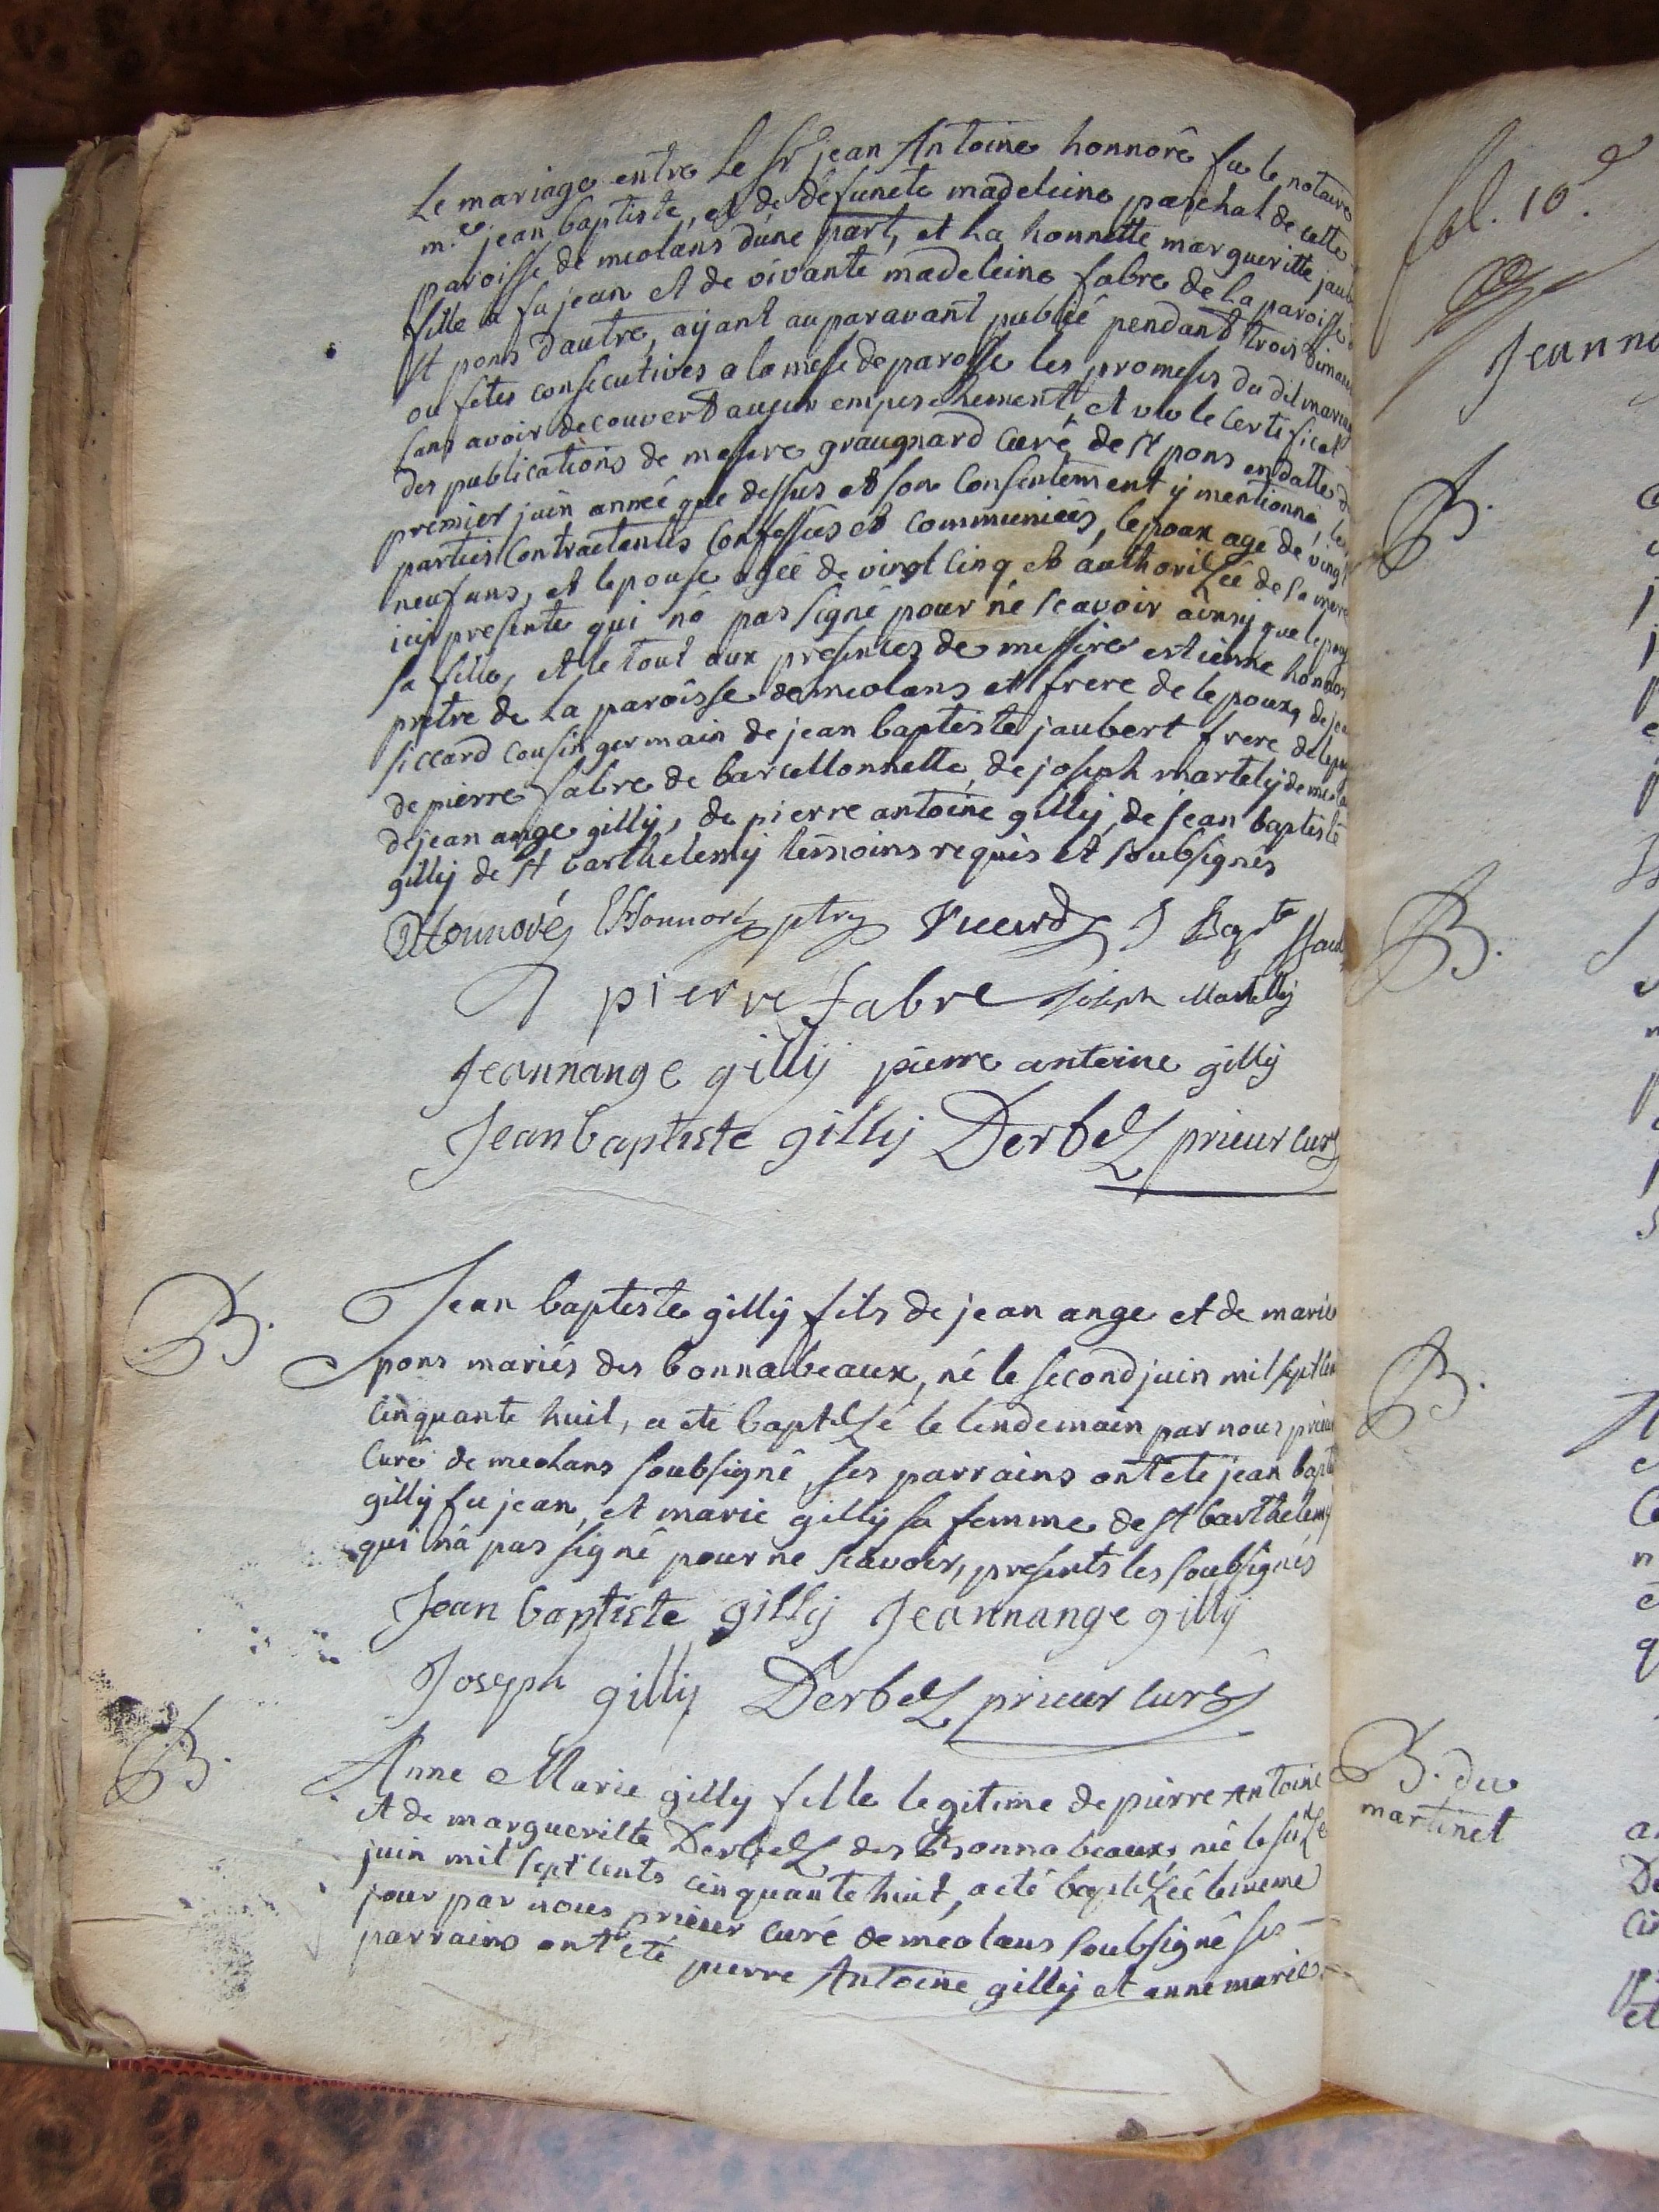 Le mariage entre Le Sr jean Antoine honnoré fu le notaire
m.e jean baptiste, et de defuncte madeleine paschal de cette
paroisse de meolans d'une part, et La honnette margueritte jaub
fille a fu jean et de vivante madeleine fabre de La paroisse
St pons d'autre, aÿant auparavant publié pendant trois diman
ou fetes consecutives a la messe de paroisse les promesses du dit maria
sans avoir decouvert aucun empeschement, et vu le certificat
des publications de messire graugnard curé de St pons en datte d
premier juin année que dessus et son Consentement ÿ mentionné, les
parties Contractantes Confessées et communiées, lepoux agé de vingt
neuf ans, et lepouse agée de vingt cinq et authorisée de sa mere
icÿ presente qui nà pas signé pour ne scavoir ainsÿ que
sa fille, et le tout aux presences de messire estienne honnor
pretre de La paroisse de meolans et frere de lepoux, de jea
siccard cousin germain de jean baptiste jaubert frere de lepou
de pierre fabre de barcellonnette, de joseph martelÿ de meola
de jean ange gillÿ, de pierre antoine gillÿ, de jean baptiste
gillÿ de St barthelemÿ temoins requis et soubsignés
Honnoré Honnoré ptre Siccard J Bapte Jau
pierre fabre Joseph Martellÿ
Jeannange gillÿ pierre antoine gillÿ
Jean baptiste gillÿ Derbez prieur curé
B. Jean baptiste gillÿ fils de jean ange et de marie
pons mariés des bonnabeaux, né le second juin mil sept cen
cinquante huit, a eté baptizé le lendemain par nous prieu
Curé de meolans soubsigné, ses parrains ont eté jean bapti
gillÿ fu jean, et marie gillÿ sa femme de St barthelemÿ
qui nà pas signé pour ne scavoir, presents les soubsignés
Jean baptiste gillÿ Jeannange gillÿ
Joseph gillÿ Derbez prieur curé
B. Anne Marie gillÿ fille legitime de pierre Antoine
et de margueritte Derbez des Bonnabeaux, née le
juin mil sept cents cinquante huit, a eté baptizée le meme
jour par nous prieur curé de méolans soubsigné ses
parrains ont eté pierre Antoine gillÿ et anne marie
fol. 10.e
Jeanno
B.
B.
B.
B. du
martinet